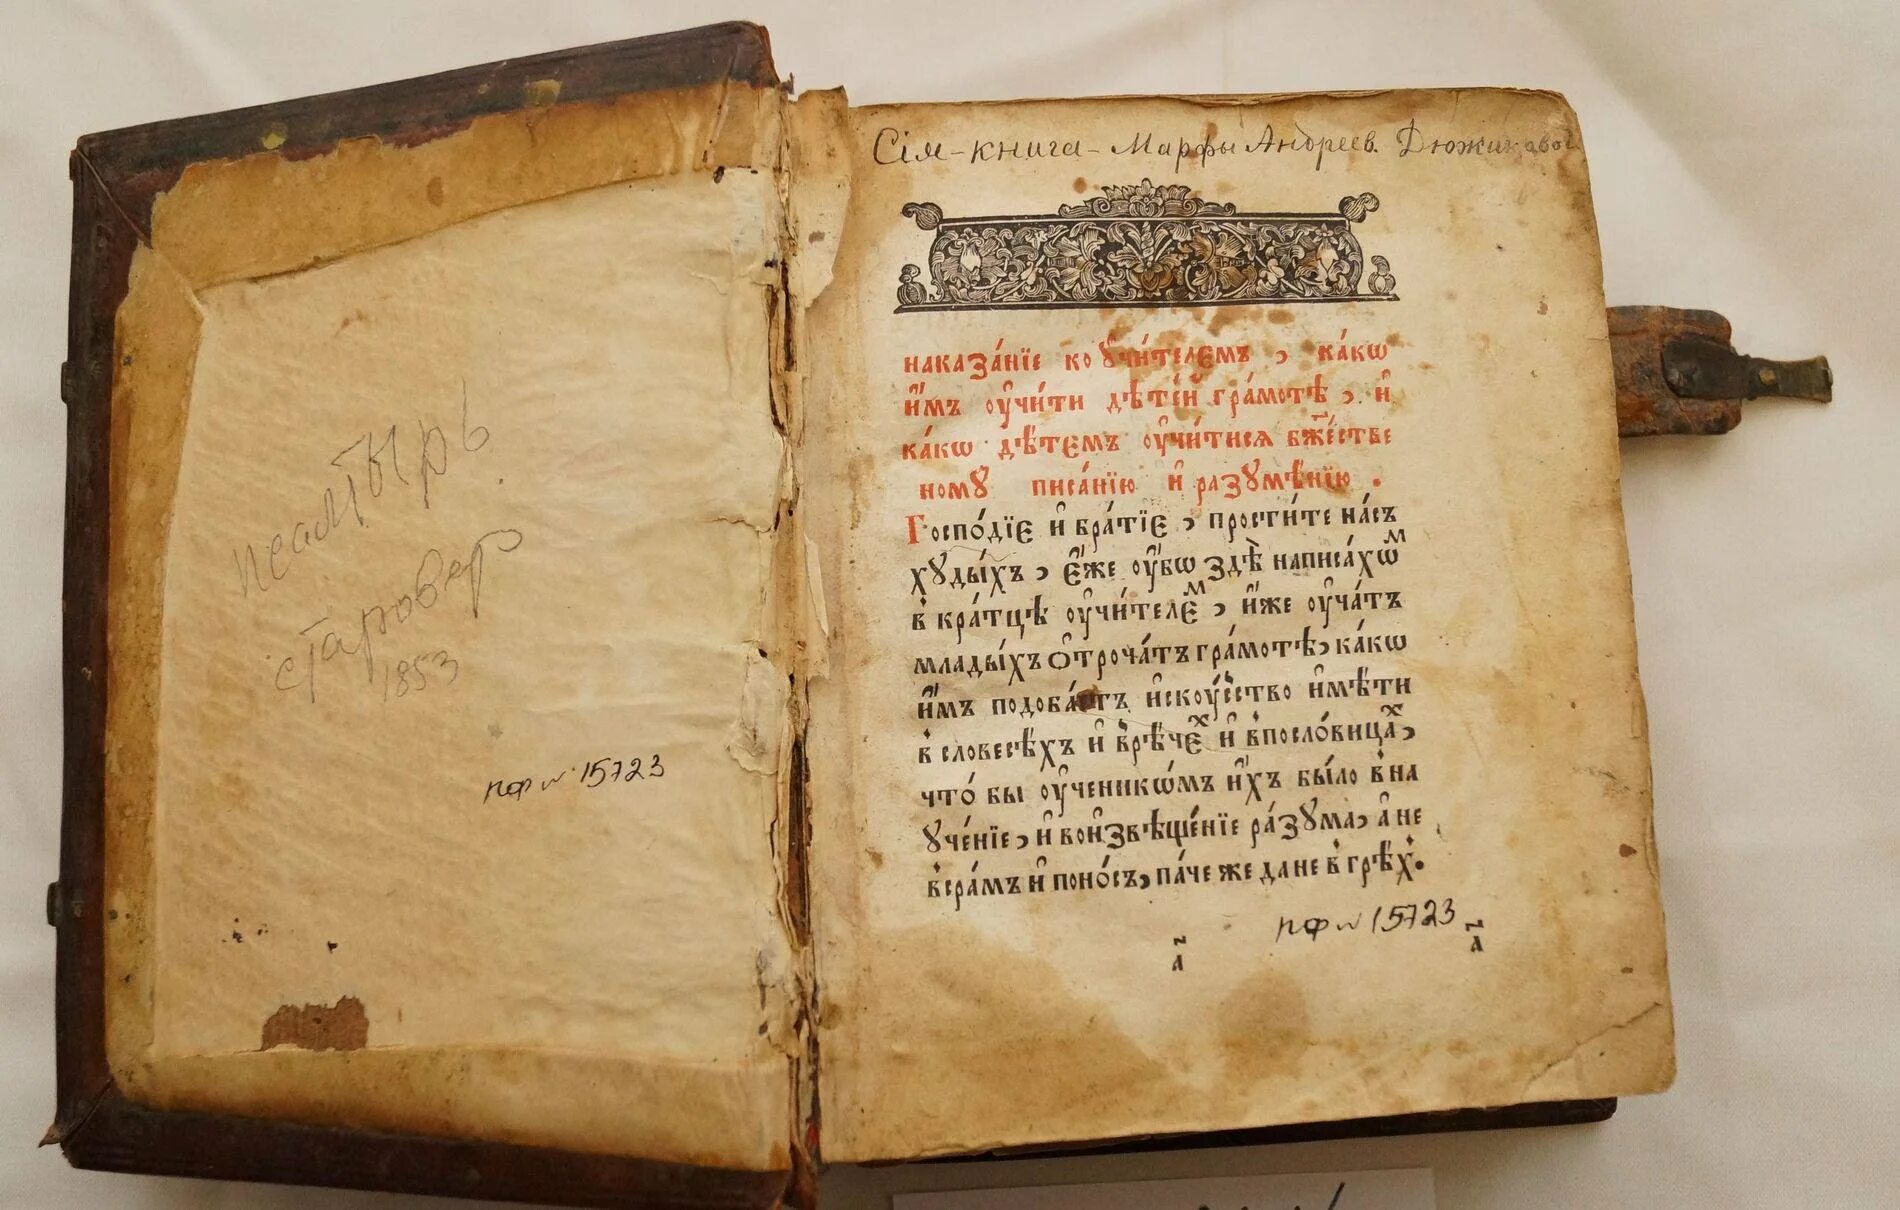 псалтырь
старовер
1853
пФ № 15723
Сія-книга-Марфы Андреев. Дюжиковой
наказа́нїе ко ᲂу҆чи́телемъ, ка́кѡ
и҆̀мъ ᲂу҆чи́ти дѣте́й гра́мотѣ, и҆
ка́кѡ дѣ́темъ ᲂу҆чи́тисѧ бж҃е́стве
ному писа́нїю и҆ разꙋмѣ́нїю .
Госпо́дїе и҆ бра́тїе, прости́те на́съ
хꙋды́хъ, є҆́же ᲂу҆́бѡ здѣ̀ написа́хѡⷨ
в кра́тцѣ ᲂу҆чи́телеⷨ, и҆́же ᲂу҆ча́тъ
млады́хъ ѻ҆троча́тъ гра́мотѣ, ка́кѡ
и҆̀мъ подоба́етъ и҆скᲂу́сство и҆мѣ́ти
в словесѣ́хъ и҆ в рѣ́чеⷯ и҆ в посло́вицаⷯ,
что́ бы ᲂу҆ченикѡ́мъ и҆́хъ бы́ло в на
ꙋче́нїе, и҆ во и҆звѣще́нїе ра́зꙋма, а҆ не
в сра́мъ и҆ поно́съ, па́че же да не в грѣ́хъ.
пФ № 15723
а҃ а҃